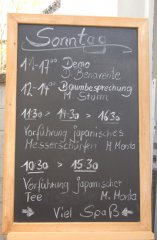 Sonntag
11-17⁰⁰ Demo
D. Benavente
12-14⁰⁰ Baumbesprechung
M. Sturm
11:30 > 14:30 > 16:30
Vorführung japanisches
Messerschärfen H. Morita
10:30 > 15:30
Vorführung japanischer
Tee M. Morita
Viel Spaß